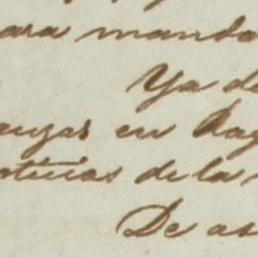 ara manda
Ya de
en
oticias de la
De as